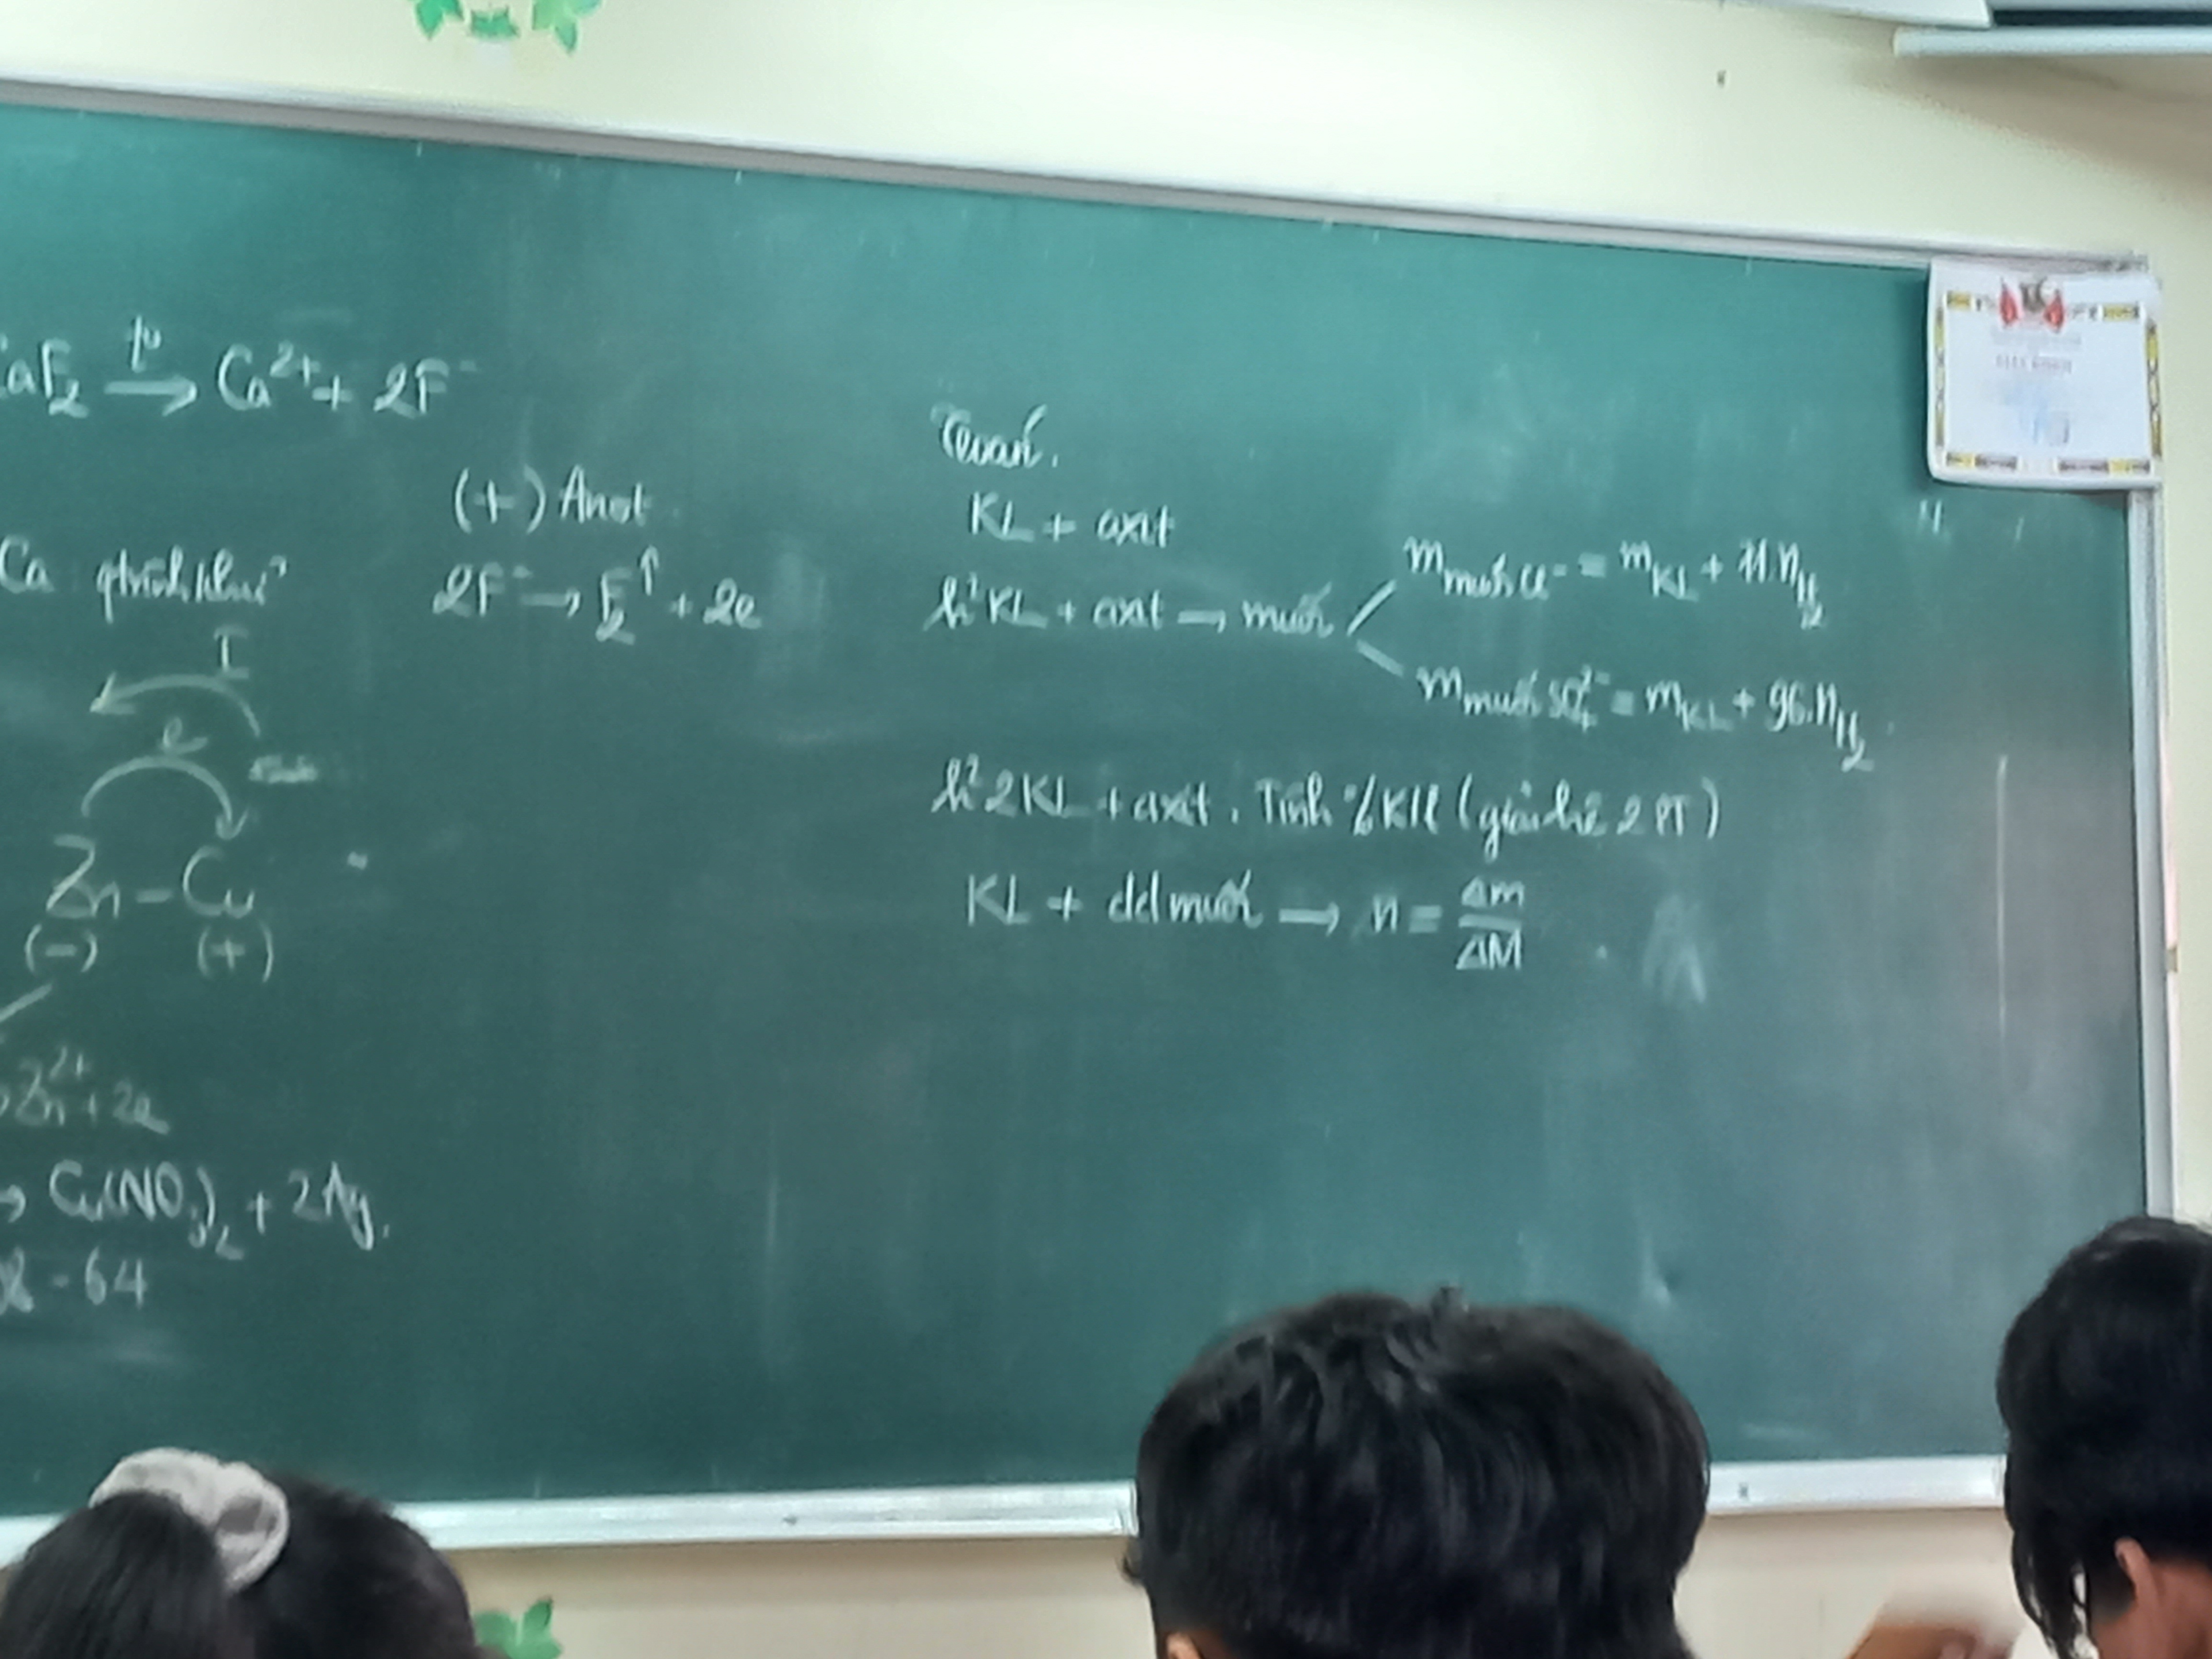 aF₂ —t°→ Ca²⁺ + 2F⁻
(+) Anot
Ca qtrình khử
2F⁻ → F₂↑ + 2e
I
e
Zn - Cu
(-) (+)
Zn²⁺ + 2e
→ Cu(NO₃)₂ + 2Ag.
- 64
Toán.
KL + axit
h² KL + axit → muối
m muối Cl⁻ = m KL + 71.n H₂
m muối SO₄²⁻ = m KL + 96.n H₂
h² 2KL + axit. Tính % KL (giải hệ 2 PT)
KL + dd muối → n = Δm/ΔM